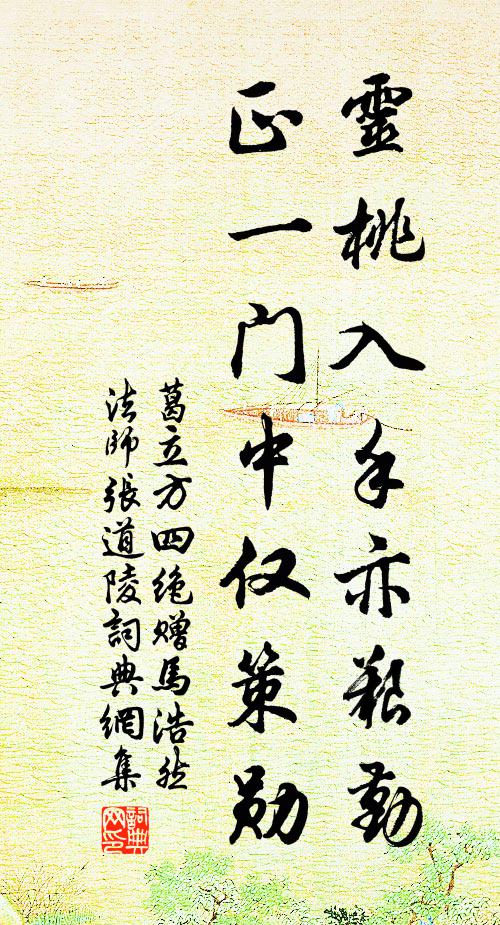 靈桃入手亦艱勤
正一門中仅策勛
葛立方四絶贈馬浩然
法師張道陵詞典網集
詞典
网印